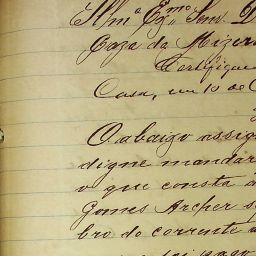 Illmº Exmº Senr.
Caza da Mizeri
Certifique
Casa, em 10 de
O abaixo assig
digne mandar
o que consta a
Gomes Archer se
bro do corrente a